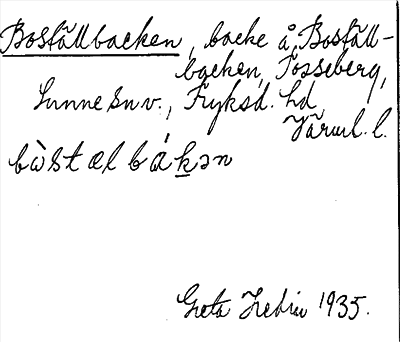 Bostället backen, backe å Boställ-
backen, Tosseberg,
Sunne sn v., Fryksd. hd,
Värml. l.
bòstælbákən
Greta Hedin 1935.